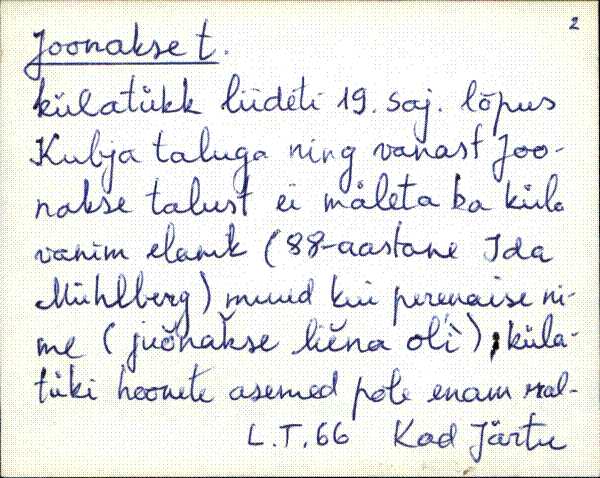 2
Joonakse t.
külatükk liideti 19. saj. lõpus
Kubja taluga ning vanast Joo-
nakse talust ei mäleta ka küla
vanim elanik (88-aastane Ida
Mühlberg) muud kui perenaise ni-
me (juõnakse liena oli); küla-
tüki hoonete asemed pole enam
L.T. 66 Kad Järtu